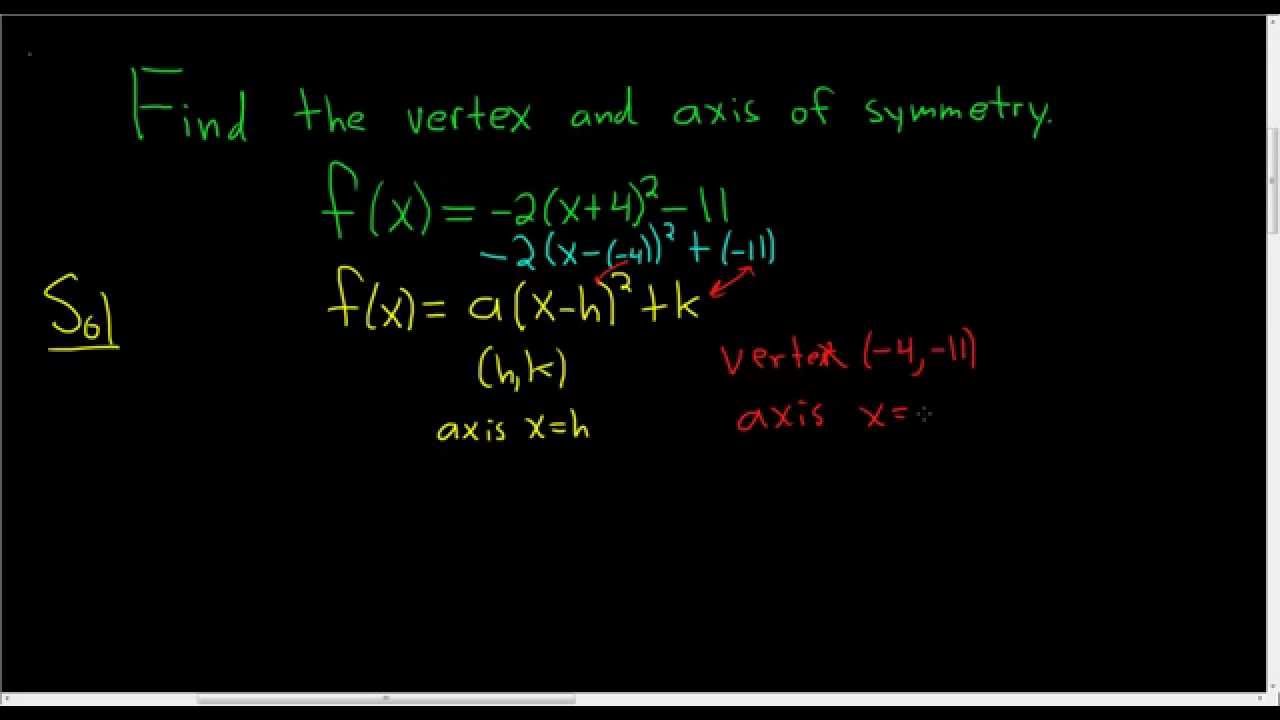 Find the vertex and axis of symmetry.
f(x) = -2(x+4)² - 11
-2(x-(-4))² + (-11)
Sol
f(x) = a(x-h)² + k
(h,k)
vertex (-4,-11)
axis x=h
axis x=